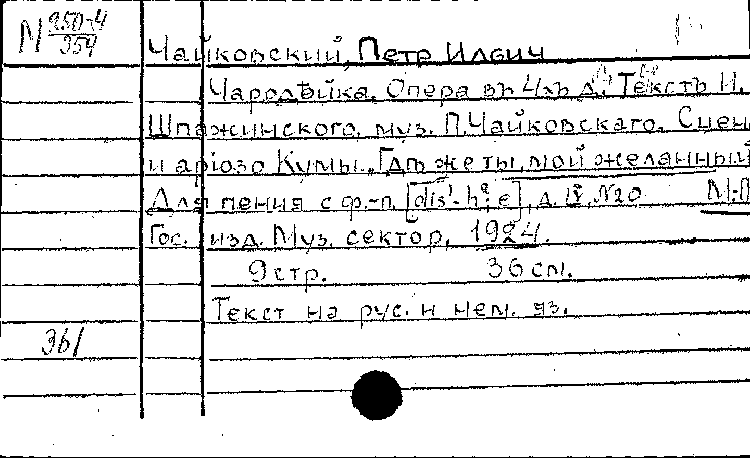 М 950-4
954
Чайковский, Петр Ильич
Чародѣйка. Опера въ 4хъ д. Текстъ И.
Шпажинского, муз. П.Чайковскаго. Сцен
и аріозо Кумы „Гдѣ же ты, мой желанный
Для пения с ф.-п. [dis¹-h²; e], д. IV, №20 М.:П
Гос. изд. Муз. сектор, 1924.
9 стр. 36 см.
Текст на рус. и нем. яз.
361